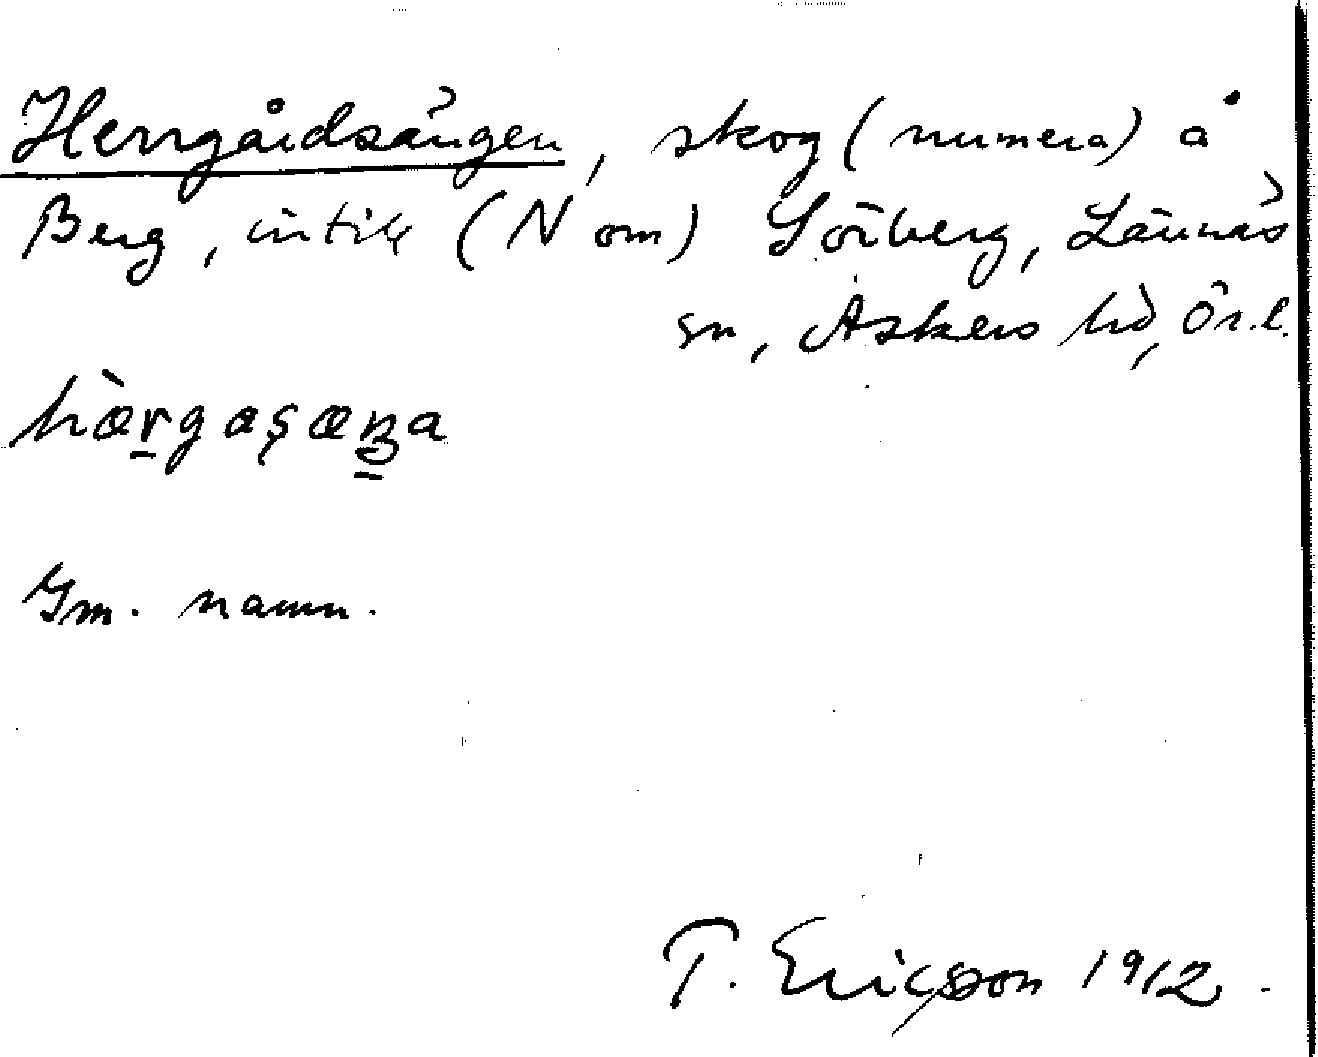 Herrgårdsängen, skog (numera) å
Berg, intill (N om) Sörberg, Lännäs
sn, Askers hd, Ör.l.
hæ̀rgaṣæŋa
Gm. namn.
T. Ericsson 1912.